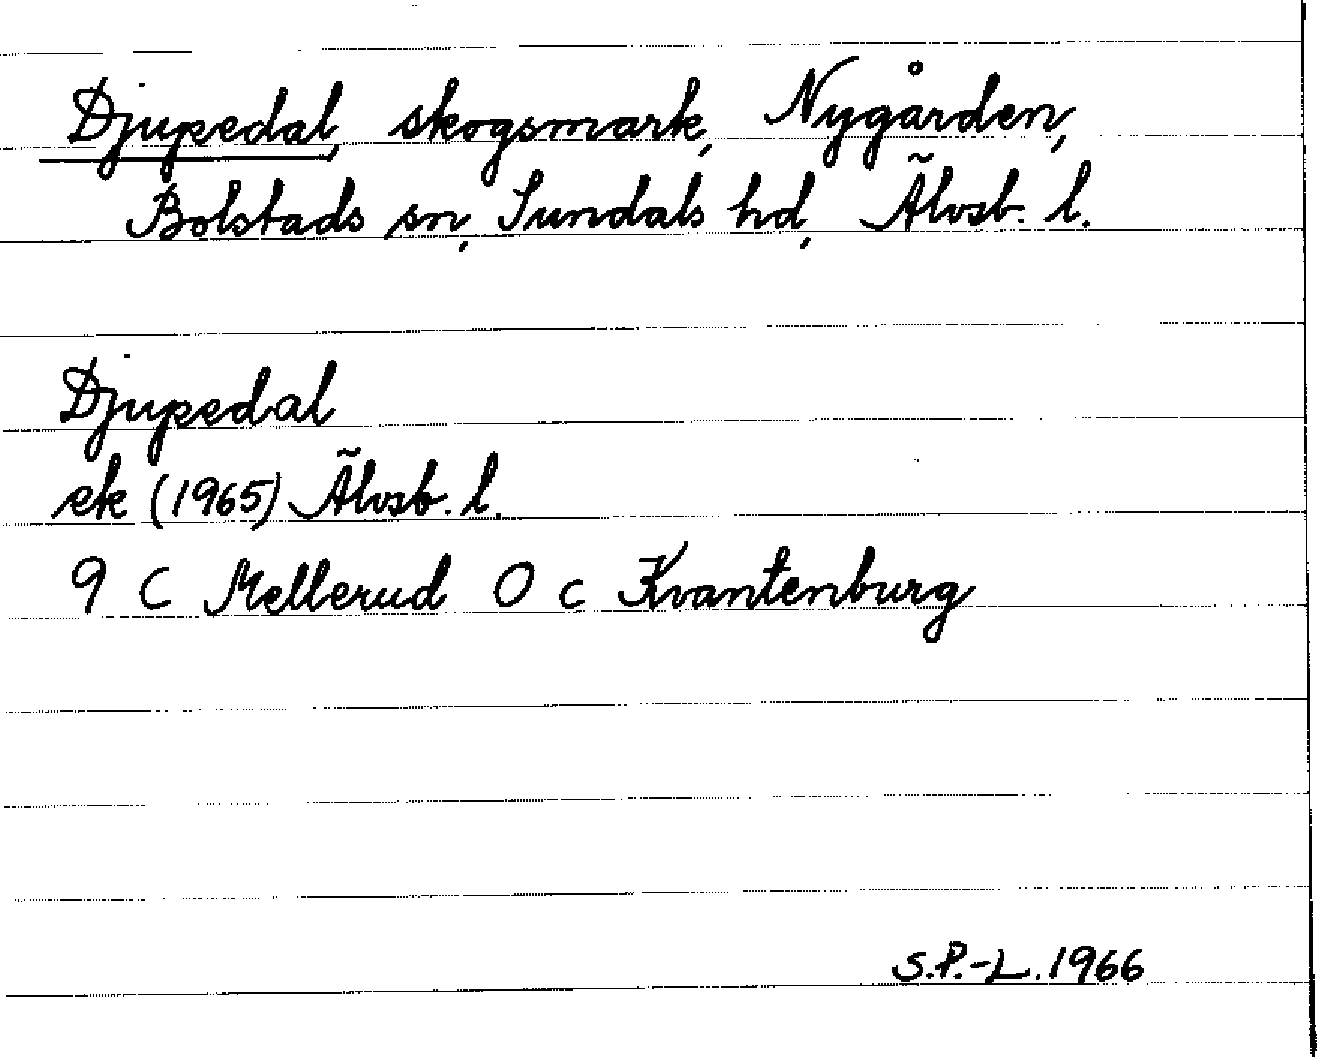 Djupedal, skogsmark, Nygården,
Bolstads sn, Sundals hd, Älvsb. l.
Djupedal
ek (1965) Älvsb. l.
9 C Mellerud O c Kvantenburg
S.P.-L. 1966